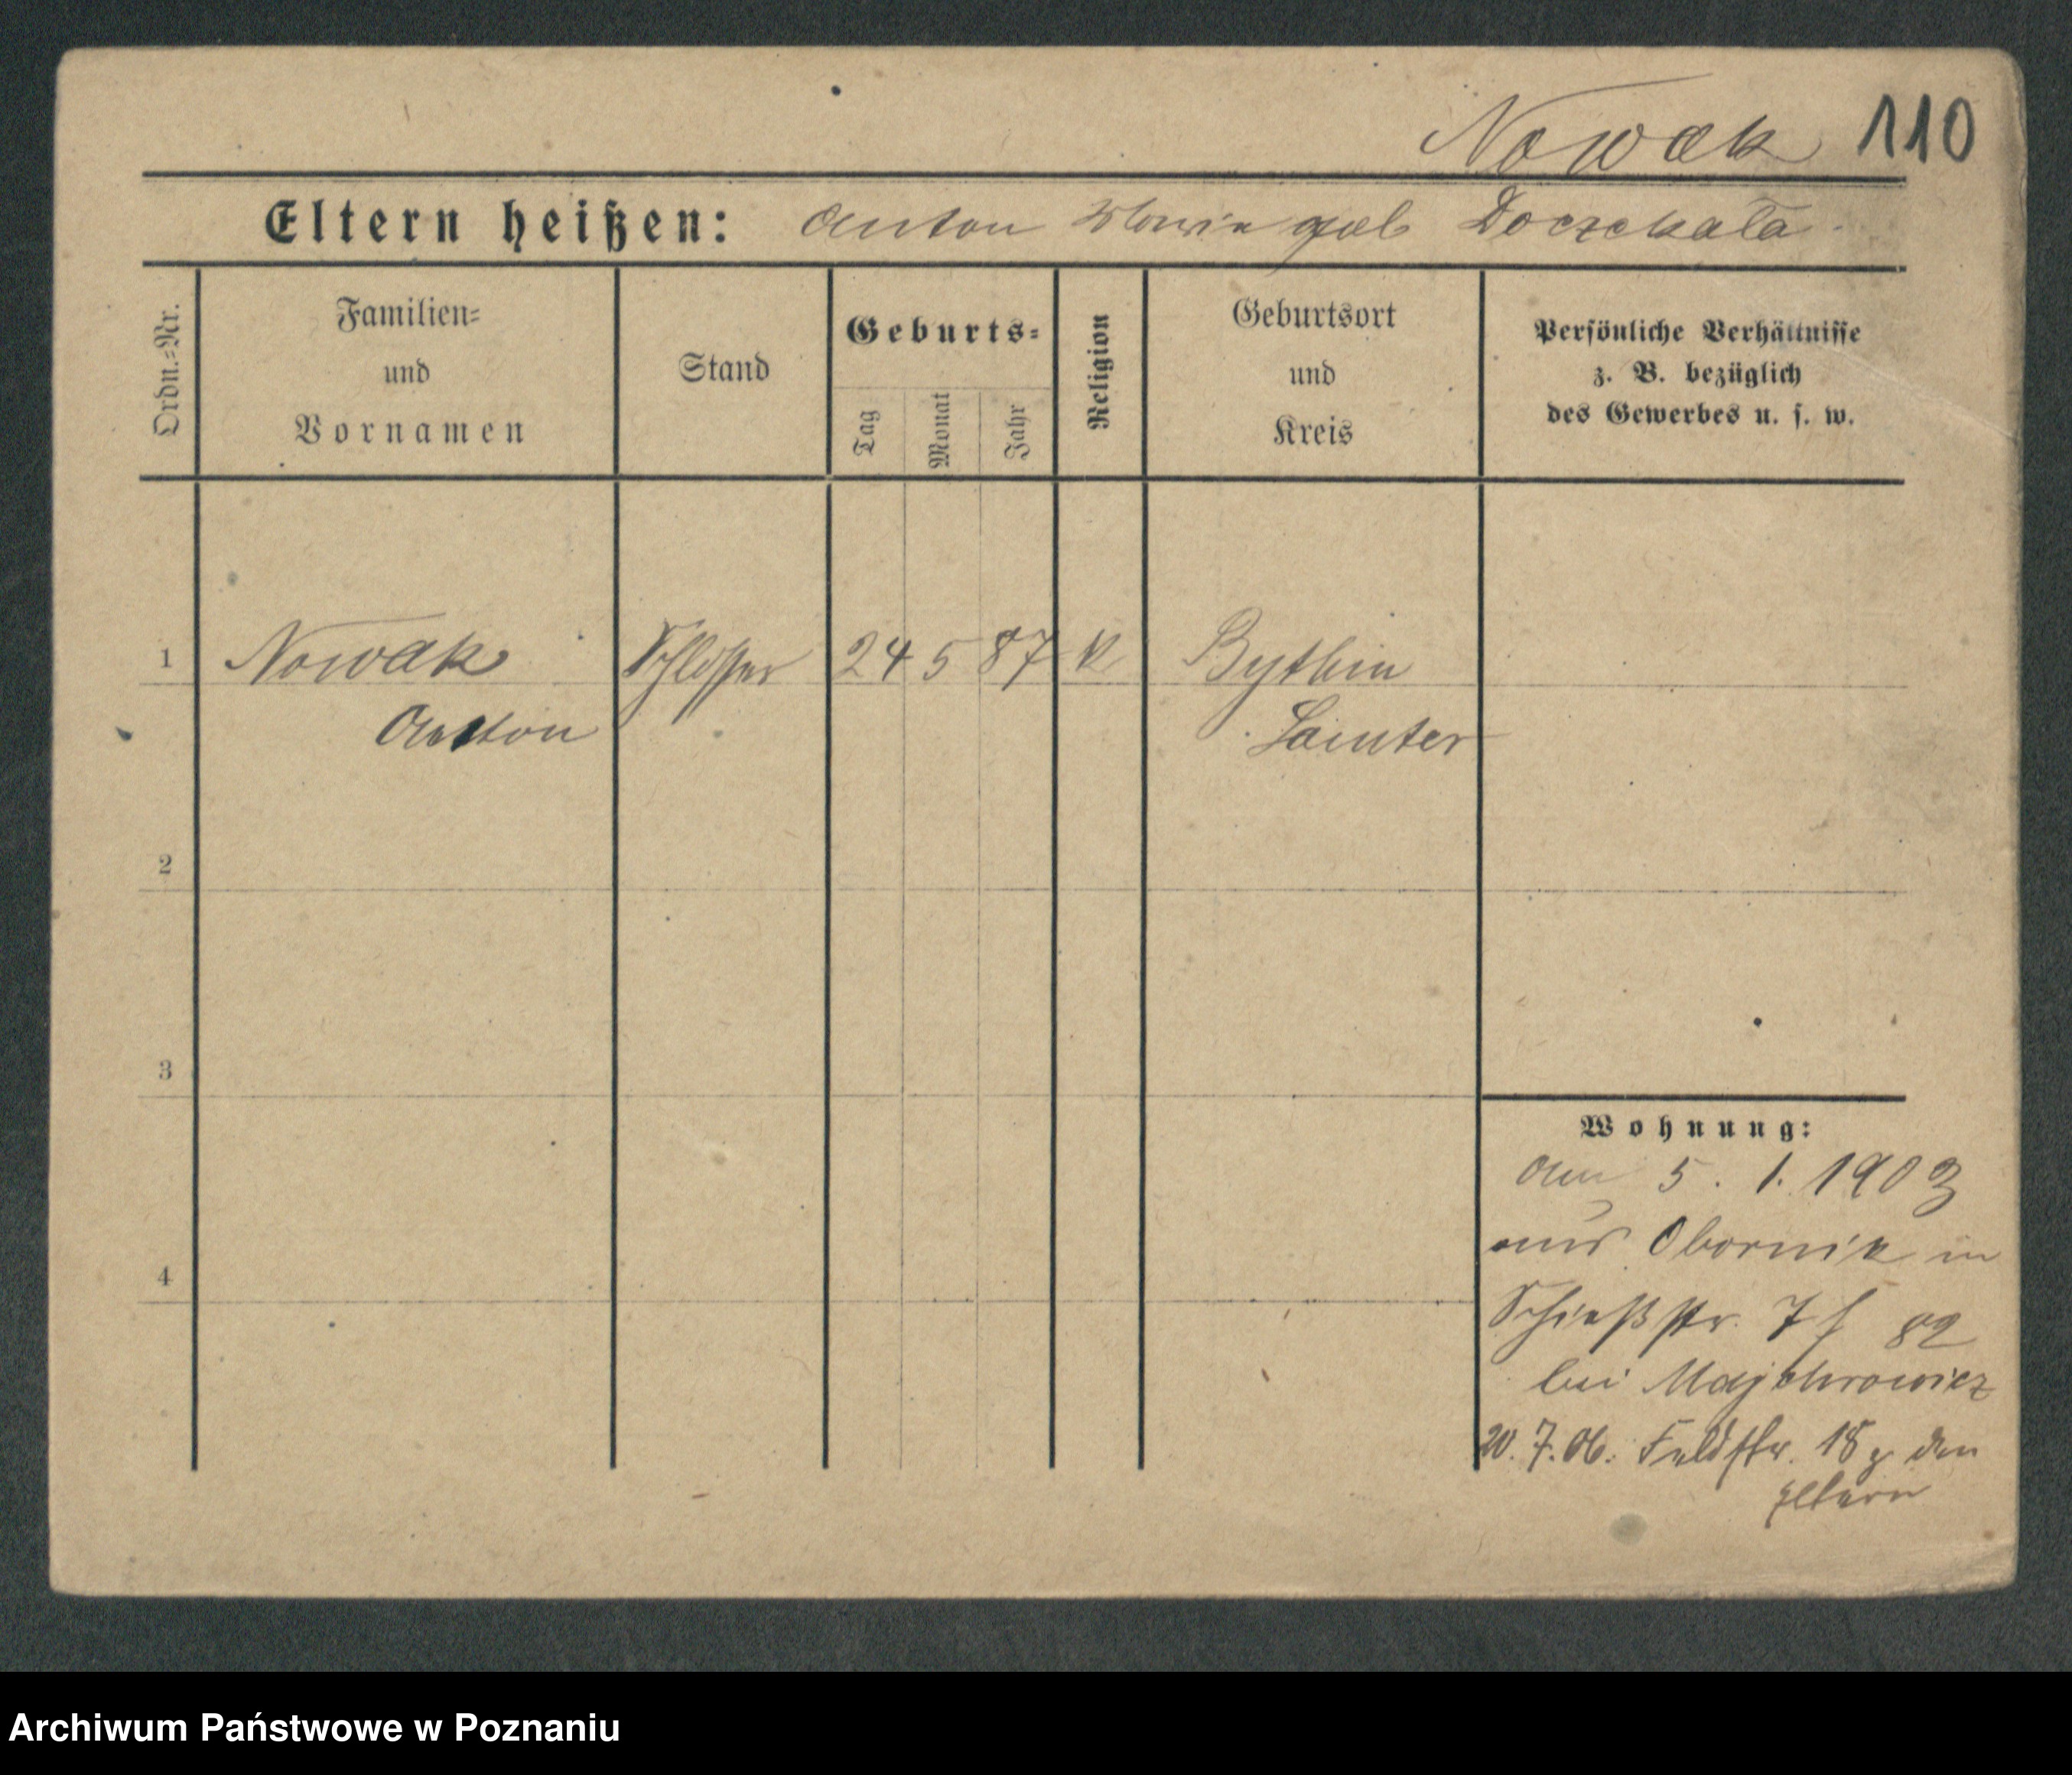 Nowak 110
Eltern heißen: Anton Maria geb Doczekała
Ordn.=Nr.
Familien=
und
Vornamen
Stand
Geburts=
Tag
Monat
Jahr
Religion
Geburtsort
und
Kreis
Persönliche Verhältnisse
z. B. bezüglich
des Gewerbes u. s. w.
1 Nowak Schlosser 24 5 87 k Bythin
Anton Samter
2
3
4
Wohnung:
am 5. 1. 1903
aus Obornik in
Schießstr. 7
bei Majchrowicz
20. 7. 06. Feldstr. 18 z den
Eltern
Archiwum Państwowe w Poznaniu